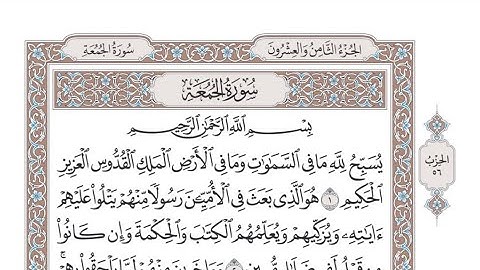 سُورَةُ الجُمُعَةِ
الجُزْءُ الثَّامِنُ وَالعِشْرُونَ
سُورَةُ الجُمُعَةِ
بِسْمِ ٱللَّهِ ٱلرَّحْمَٰنِ ٱلرَّحِيمِ
يُسَبِّحُ لِلَّهِ مَا فِي ٱلسَّمَٰوَٰتِ وَمَا فِي ٱلْأَرْضِ ٱلْمَلِكِ ٱلْقُدُّوسِ ٱلْعَزِيزِ
ٱلْحَكِيمِ ١ هُوَ ٱلَّذِي بَعَثَ فِي ٱلْأُمِّيِّـۧنَ رَسُولًا مِّنْهُمْ يَتْلُوا۟ عَلَيْهِمْ
ءَايَٰتِهِۦ وَيُزَكِّيهِمْ وَيُعَلِّمُهُمُ ٱلْكِتَٰبَ وَٱلْحِكْمَةَ وَإِن كَانُوا۟
الحِزْبُ
٥٦